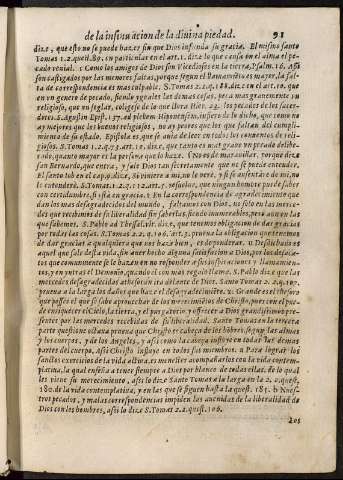 de la insinuacion de la diuina piedad. 91
dize, que esto no se puede hazer sin que Dios infunda su gracia. El mismo santo
Tomas 1. 2. quest. 89. en particular en el art. 1. dize lo que causa en el alma el pe-
cado venial. Como los amigos de Dios son Vicediosos en la tierra, Psalm. 16. Assi
son castigados por las menores faltas, porque segun el Romano es mayor, la fal-
ta de correspondencia es mas culpable. S. Tomas 2. 2. q. 186. dize en el art. 10. que
en un genero de pecado, siendo yguales las demas cosas, peca mas grauemente un
religioso, que un seglar, colige se de lo que llora Hier. 23. los pecados de los sacer-
dotes. S. Agustin Epist. 137. ad plebem Hiponensem, infiere de lo dicho, que como no
ay mejores que los buenos religiosos, no ay peores que los que faltan del cumpli-
miento de su estado. Epistola es, que se auia de leer en todos los conuentos de reli-
giosos. S. Tomas 1. 2. q. 73. art. 10. dize, que tanto es mas graue un pecado delibe-
rado, quanto mayor es la persona que lo haze. No es de marauillar, porque dize
san Bernardo, que entra, y sale Dios tan secretamente que no se puede entender,
El santo Iob en el cap. 9. dize, Si viniere a mi, no le vere, y si se ausentare de mi, no
lo entendere. S. Tomas 1. 2. q. 112. art. 5. resuelue, que ningun hombre puede saber
con certidumbre, si està en gracia. En la correspondencia de agradecimiento que
dan los mas desagradecidos del mundo, faltamos con Dios, no solo en las merce-
des que recibimos de su liberalidad sin saberlas, siendo innumerables, pero aun en las
que sabemos. S. Pablo ad Thessal. dize, que tenemos obligacion de dar gracias
por todas las cosas. S. Tom. 2. 2. q. 106. art. 3. prueua la obligacion que tenemos
de dar gracias a qualquiera que nos haze bien, es deponderar. Desdichado es
aquel que sale desta vida, sin auer hecho digna satisfacion a Dios, por los desaca-
tos que comunmente se le hazen en no responder a sus inspiraciones y llamamien-
tos, y en yr tras el Demonio, quando el con mas regalo llama. S. Pablo dize que las
mercedes desagradecidas athesoran ira delante de Dios. Santo Tomas 2. 2. q. 107.
prueua a la larga los daños que haze el desagradecimiento. Grande es el thesoro
que possee el que se sabe aprouechar de los merecimientos de Christo, pues con el pue-
de enriquecer el Cielo, la tierra, y el purgatorio y ofrecer a Dios grandissimo pre-
sente por las mercedes recebidas de su liberalidad. Santo Tomas en la tercera
parte question octaua prueua que Christo es cabeça de los hôbres, segun las almas
y los cuerpos, y de los Angeles, y assi como la cabeça influye en todas las demas
partes del cuerpo, assi Christo influye en todos sus miembros. Para lograr los
sanctos exercicios de la vida actiua, es menester acompañarlos con la vida contem-
platiua, la qual enseña a tener siempre a Dios por blanco de todas ellas. De lo qual
les viene su merecimiento, assi lo dize Santo Tomas a la larga en la 2. 2. quest.
180. de la vida contemplatiua, y en las que se siguen hasta la quest. 185. Nues-
tros pecados, y malas correspondencias impiden las auenidas de la liberalidad de
Dios con los hombres, assi lo dize S. Tomas 2. 2. quest. 106.
Los